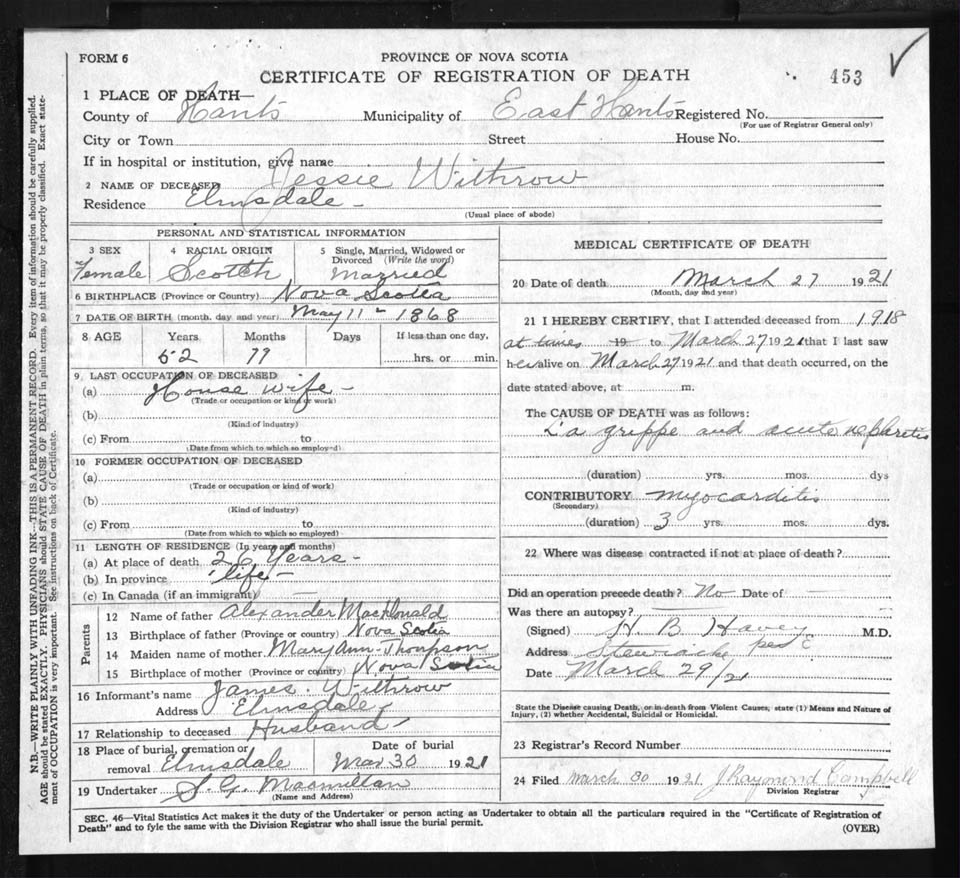 FORM 6
PROVINCE OF NOVA SCOTIA
CERTIFICATE OF REGISTRATION OF DEATH
453
1 PLACE OF DEATH—
County of Hants Municipality of East Hants Registered No.
(For use of Registrar General only)
City or Town Street House No.
If in hospital or institution, give name
2 NAME OF DECEASED Jessie Withrow
Residence Elmsdale -
(Usual place of abode)
PERSONAL AND STATISTICAL INFORMATION
3 SEX 4 RACIAL ORIGIN 5 Single, Married, Widowed or Divorced (Write the word)
Female Scotch Married
6 BIRTHPLACE (Province or Country) Nova Scotia
7 DATE OF BIRTH (month, day and year) May 11 - 1868
8 AGE Years Months Days If less than one day,
52 11 hrs. or min.
9 LAST OCCUPATION OF DECEASED
(a) House wife -
(Trade or occupation or kind of work)
(b)
(Kind of industry)
(c) From to
(Date from which to which so employed)
10 FORMER OCCUPATION OF DECEASED
(a)
(Trade or occupation or kind of work)
(b)
(Kind of industry)
(c) From to
(Date from which to which so employed)
11 LENGTH OF RESIDENCE (In years and months)
(a) At place of death 26 Years -
(b) In province life -
(c) In Canada (if an immigrant) —
Parents
12 Name of father Alexander MacDonald
13 Birthplace of father (Province or country) Nova Scotia
14 Maiden name of mother Mary Ann Thompson
15 Birthplace of mother (Province or country) Nova Scotia
16 Informant's name James Withrow
Address Elmsdale
17 Relationship to deceased Husband
18 Place of burial, cremation or removal Elmsdale
Date of burial
Mar 30 1921
19 Undertaker S. G. Macmillan
(Name and Address)
MEDICAL CERTIFICATE OF DEATH
20 Date of death March 27 1921
(Month, day and year)
21 I HEREBY CERTIFY, that I attended deceased from 1918
at times 19 to March 27 1921 that I last saw
her alive on March 27 1921 and that death occurred, on the
date stated above, at m.
The CAUSE OF DEATH was as follows:
La grippe and acute nephritis
(duration) yrs. mos. dys
CONTRIBUTORY myocarditis
(Secondary)
(duration) 3 yrs. mos. dys.
22 Where was disease contracted if not at place of death?
Did an operation precede death? No Date of —
Was there an autopsy? —
(Signed) H. B. Havey M.D.
Address Stewiacke per E
Date March 29/21
State the Disease causing Death, or in death from Violent Causes, state (1) Means and Nature of
Injury, (2) whether Accidental, Suicidal or Homicidal.
23 Registrar's Record Number
24 Filed March 30 1921 J Raymond Campbell
Division Registrar
SEC. 46—Vital Statistics Act makes it the duty of the Undertaker or person acting as Undertaker to obtain all the particulars required in the "Certificate of Registration of
Death" and to fyle the same with the Division Registrar who shall issue the burial permit.
(OVER)
N.B.—WRITE PLAINLY WITH UNFADING INK—THIS IS A PERMANENT RECORD. Every item of information should be carefully supplied.
AGE should be stated EXACTLY. PHYSICIANS should STATE CAUSE OF DEATH in plain terms, so that it may be properly classified. Exact state-
ment of OCCUPATION is very important. See instructions on back of Certificate.